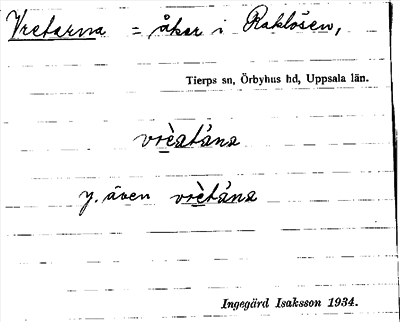 Vretarna = åkrar i Raklösen,
Tierps sn, Örbyhus hd, Uppsala län.
vrèatána
y. även vrètána
Ingegärd Isaksson 1934.